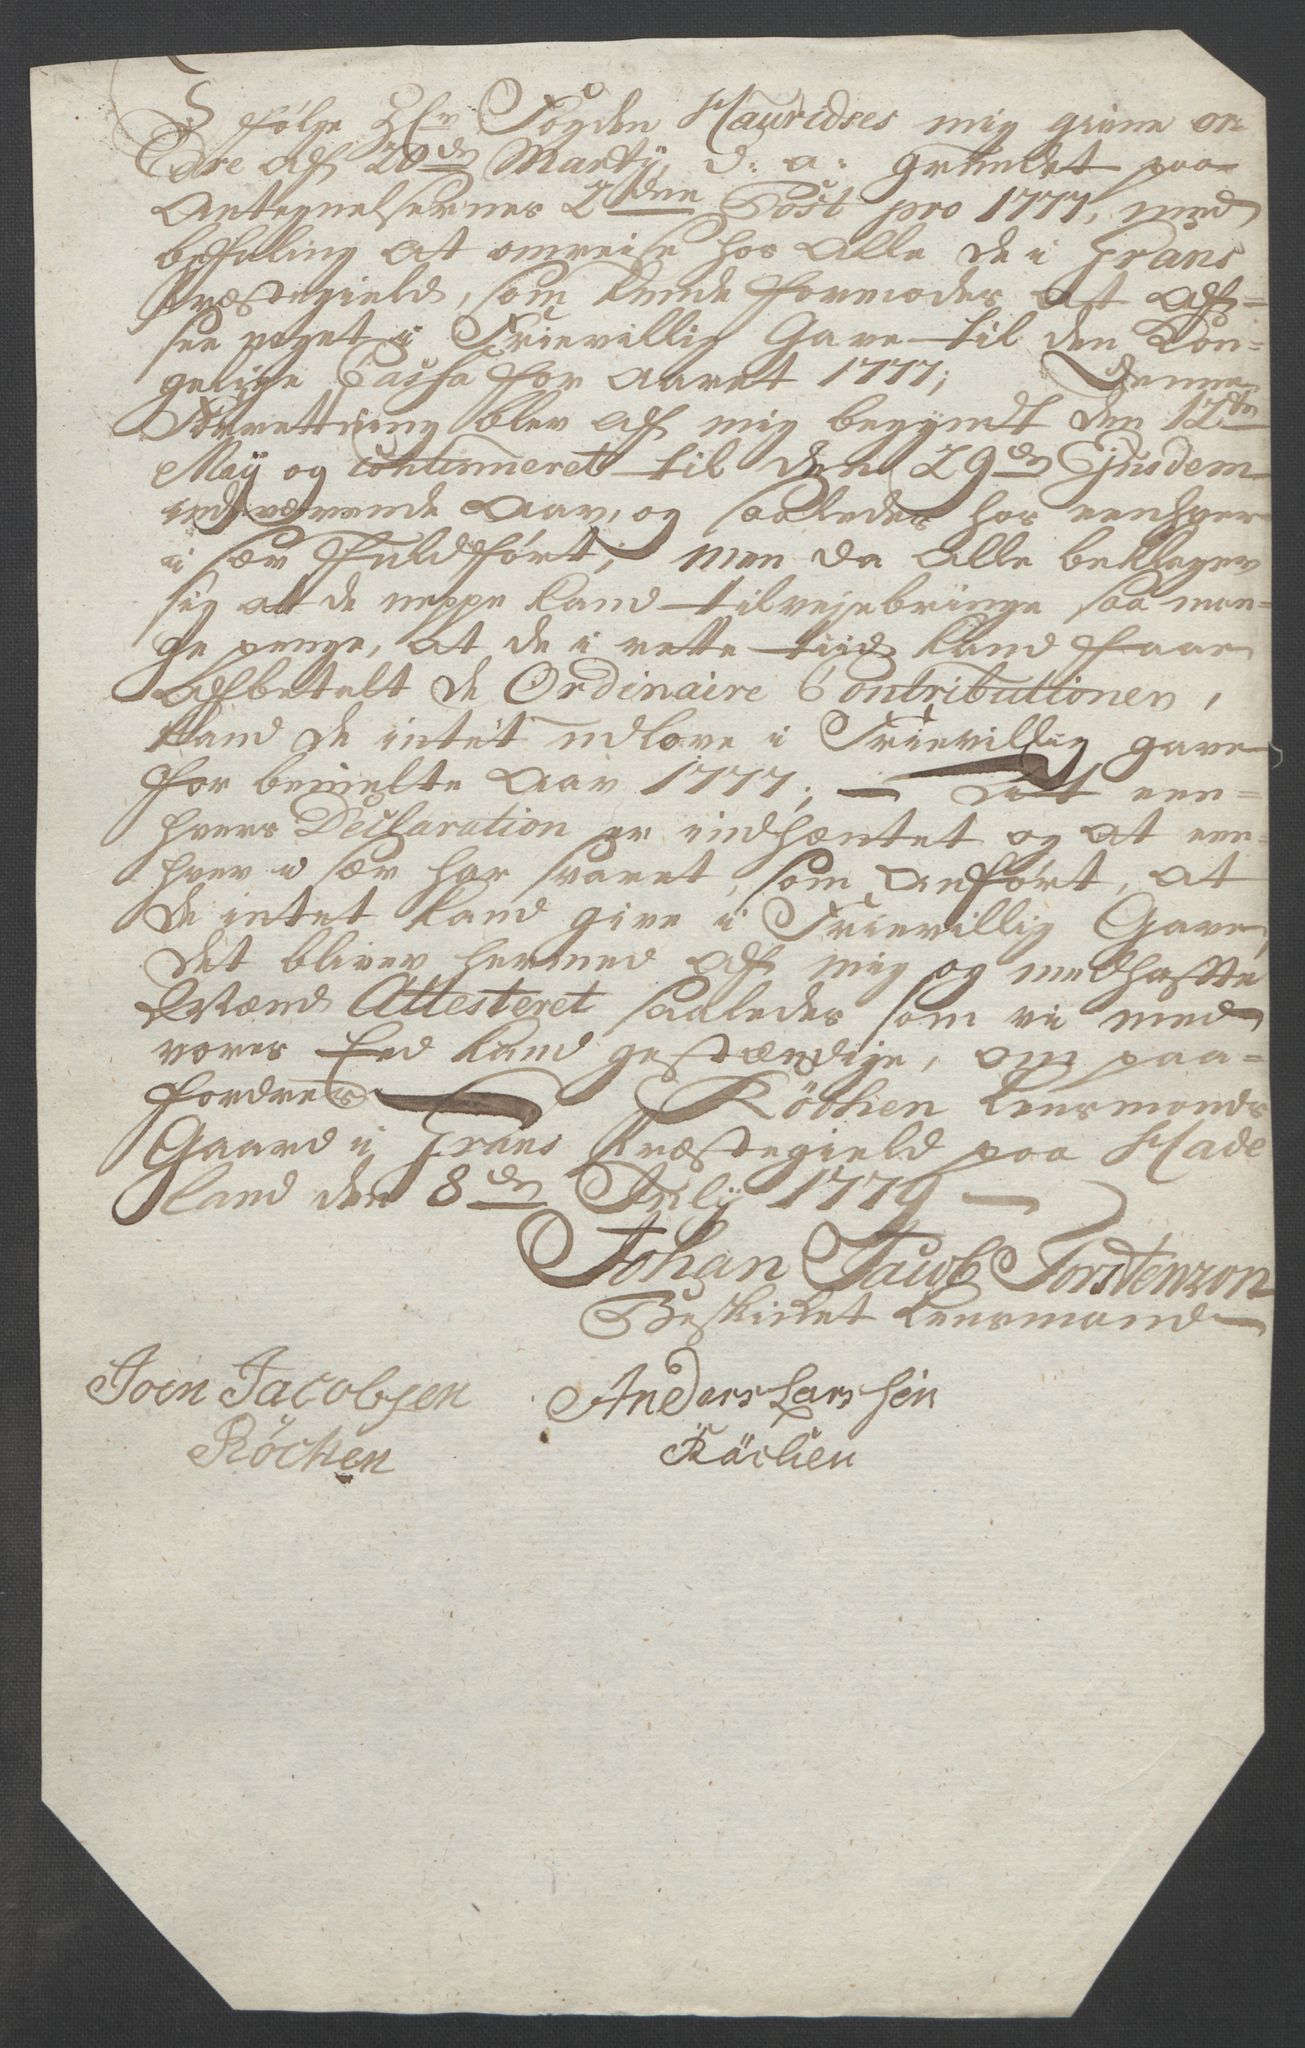 I følge Hr Fogden Hauridses mig givne or-
dre af 20de Marty d: a: grundet paa
Antegnelsernes 2den Post pro 1777, med
befaling at omreise hos alle de i Grans
Præstegield, som kunde formodes at af-
see noget i Frievillig Gave til den Kon-
gelige Cassa for Aaret 1777; Denne
Forretning blev af mig begyndt den 12te
Maij og Continueret til den 29de Ejusdem
indeværende Aar, og saaledes hos eenhver
i sær fuldført; men da alle beklager
sig at de neppe kand tilvejebringe saa man-
ge penge, at de i rette tiid kand faae
Afbetalt de Ordinaire Contributioner,
kand de intet udlove i Frievillig gave
for bemelte Aar 1777; At een-
hvers Declaration er indhæntet og at een-
hver i sær har svaret, som Anført, at
de intet kand give i Frievillig Gave,
det bliver hermed af mig og medhafte
Mænd Attesteret saaledes som vi med
vores Eed kand gestændige, om paa-
fordres Röchen Lensmands
Gaard i Grans Præstegield paa Hade
land den 8de July 1779
Johan Jacob Torstenson
Beskikket Lensmand
Joen Jacobsen Anders Larssen
Röchen Röchen